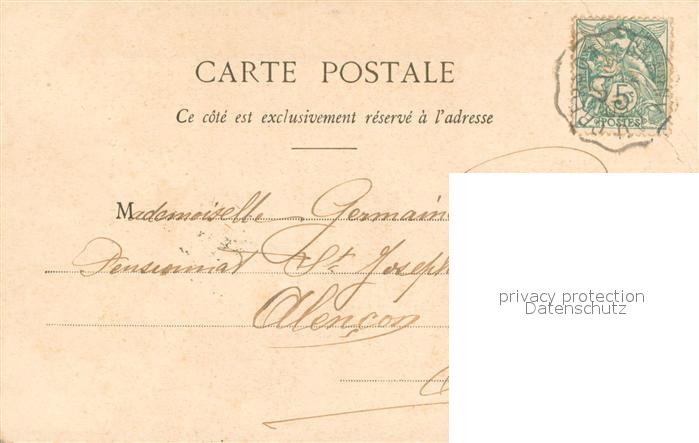 CARTE POSTALE
Ce côté est exclusivement réservé à l'adresse
5
POSTES
Mademoiselle Germaine
Pensionnat St Joseph
Alençon
privacy protection
Datenschutz